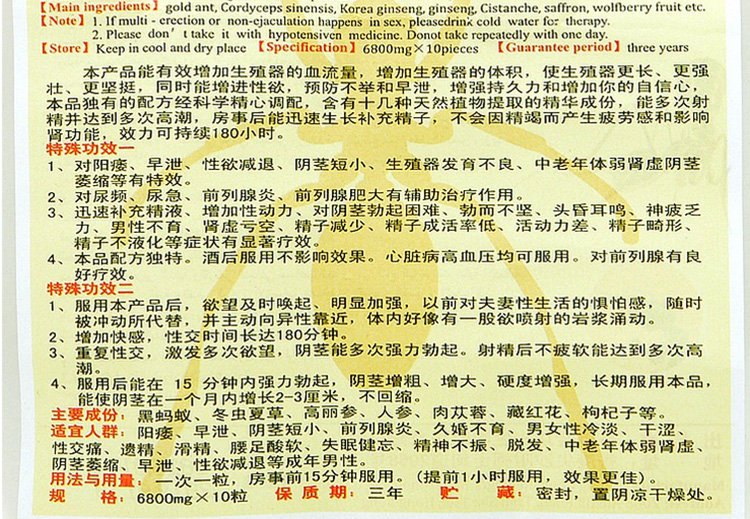 【Main ingredients】 gold ant, Cordyceps sinensis, Korea ginseng, ginseng, Cistanche, saffron, wolfberry fruit etc.
【Note】 1. If multi - erection or non-ejaculation happens in sex, pleasedrink cold water for therapy.
2. Please don’t take it with hypotensiven medicine. Donot take repeatedly with one day.
【Store】 Keep in cool and dry place 【Specification】 6800mg×10pieces 【Guarantee period】 three years
本产品能有效增加生殖器的血流量，增加生殖器的体积，使生殖器更长、更强
壮、更坚挺，同时能增进性欲，预防不举和早泄，增强持久力和增加你的自信心，
本品独有的配方经科学精心调配，含有十几种天然植物提取的精华成份，能多次射
精并达到多次高潮，房事后能迅速生长补充精子，不会因精竭而产生疲劳感和影响
肾功能，效力可持续180小时。
特殊功效一
1、对阳痿、早泄、性欲减退、阴茎短小、生殖器发育不良、中老年体弱肾虚阴茎
萎缩等有特效。
2、对尿频、尿急、前列腺炎、前列腺肥大有辅助治疗作用。
3、迅速补充精液、增加性动力、对阴茎勃起困难、勃而不坚、头昏耳鸣、神疲乏
力、男性不育、肾虚亏空、精子减少、精子成活率低、活动力差、精子畸形、
精子不液化等症状有显著疗效。
4、本品配方独特。酒后服用不影响效果。心脏病高血压均可服用。对前列腺有良
好疗效。
特殊功效二
1、服用本产品后，欲望及时唤起、明显加强，以前对夫妻性生活的惧怕感，随时
被冲动所代替，并主动向异性靠近，体内好像有一股欲喷射的岩浆涌动。
2、增加快感，性交时间长达180分钟。
3、重复性交，激发多次欲望，阴茎能多次强力勃起。射精后不疲软能达到多次高
潮。
4、服用后能在 15 分钟内强力勃起，阴茎增粗、增大、硬度增强，长期服用本品，
能使阴茎在一个月内增长2-3厘米，不回缩。
主要成份：黑蚂蚁、冬虫夏草、高丽参、人参、肉苁蓉、藏红花、枸杞子等。
适宜人群：阳痿、早泄、阴茎短小、前列腺炎、久婚不育、男女性冷淡、干涩、
性交痛、遗精、滑精、腰足酸软、失眠健忘、精神不振、脱发、中老年体弱肾虚、
阴茎萎缩、早泄、性欲减退等成年男性。
用法与用量：一次一粒，房事前15分钟服用。（提前1小时服用，效果更佳）。
规 格：6800mg×10粒 保 质 期：三年 贮 藏：密封，置阴凉干燥处。